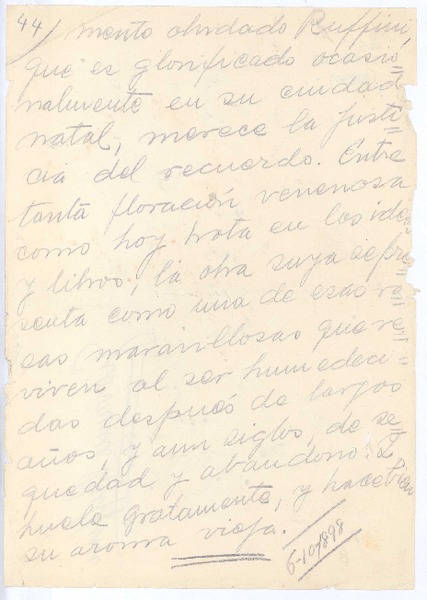 44/ mento olvidado Ruffini,
que es glorificado ocasio=
nalmente en su ciudad
natal, merece la justi=
cia del recuerdo. Entre
tanta floración venenosa
como hoy brota en las ideas
y libros, la obra suya se pre=
senta como una de esas ro=
sas maravillosas que re=
viven al ser humedeci=
das después de largos
años, y aun siglos, de se=
quedad y abandono. I
huele gratamente, y hace bien
su aroma viejo.
6-10-1898